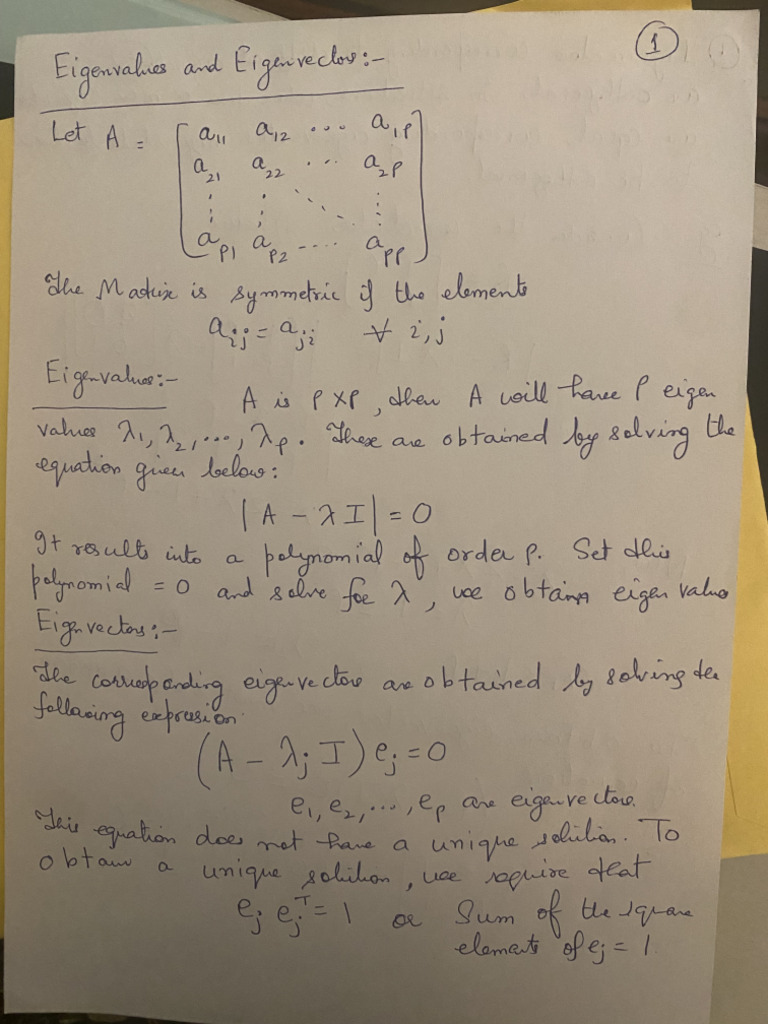 1
Eigenvalues and Eigenvectors:-
Let A = [ a₁₁ a₁₂ ... a₁P
a₂₁ a₂₂ ... a₂P
⋮ ⋮ ⋱ ⋮
aP₁ aP₂ .... aPP ]
The Matrix is symmetric if the elements
aᵢⱼ = aⱼᵢ ∀ i, j
Eigenvalues:-
A is P×P, then A will have P eigen
values λ₁, λ₂, ..., λP. These are obtained by solving the
equation given below:
|A - λI| = 0
It results into a polynomial of order P. Set this
polynomial = 0 and solve for λ, we obtain eigen value
Eigenvectors:-
The corresponding eigenvectors are obtained by solving the
following expression
(A - λⱼ I) eⱼ = 0
e₁, e₂, ..., eP are eigenvectors.
This equation does not have a unique solution. To
obtain a unique solution, we require that
eⱼ eⱼᵀ = 1 or Sum of the square
elements of eⱼ = 1